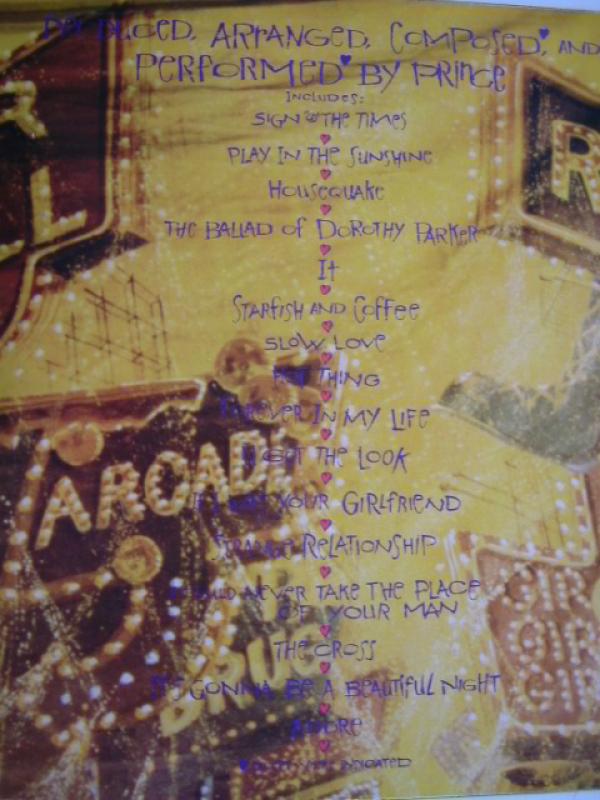 PRODUCED, ARRANGED, COMPOSED, AND
PERFORMED BY PRINCE
INCLUDES:
SIGN "☮" THE TIMES
PLAY IN THE SUNSHINE
HOUSEQUAKE
THE BALLAD of DOROTHY PARKER
It
STARFISH AND COFFEE
SLOW LOVE
HOT THING
FOREVER IN MY LIFE
U GOT THE LOOK
IF I WAS YOUR GIRLFRIEND
STRANGE RELATIONSHIP
I COULD NEVER TAKE THE PLACE
OF YOUR MAN
THE CROSS
IT'S GONNA BE A BEAUTIFUL NIGHT
ADORE
INDICATED
ARCADE
R
L
R
GIRL
GIRL
GIRL